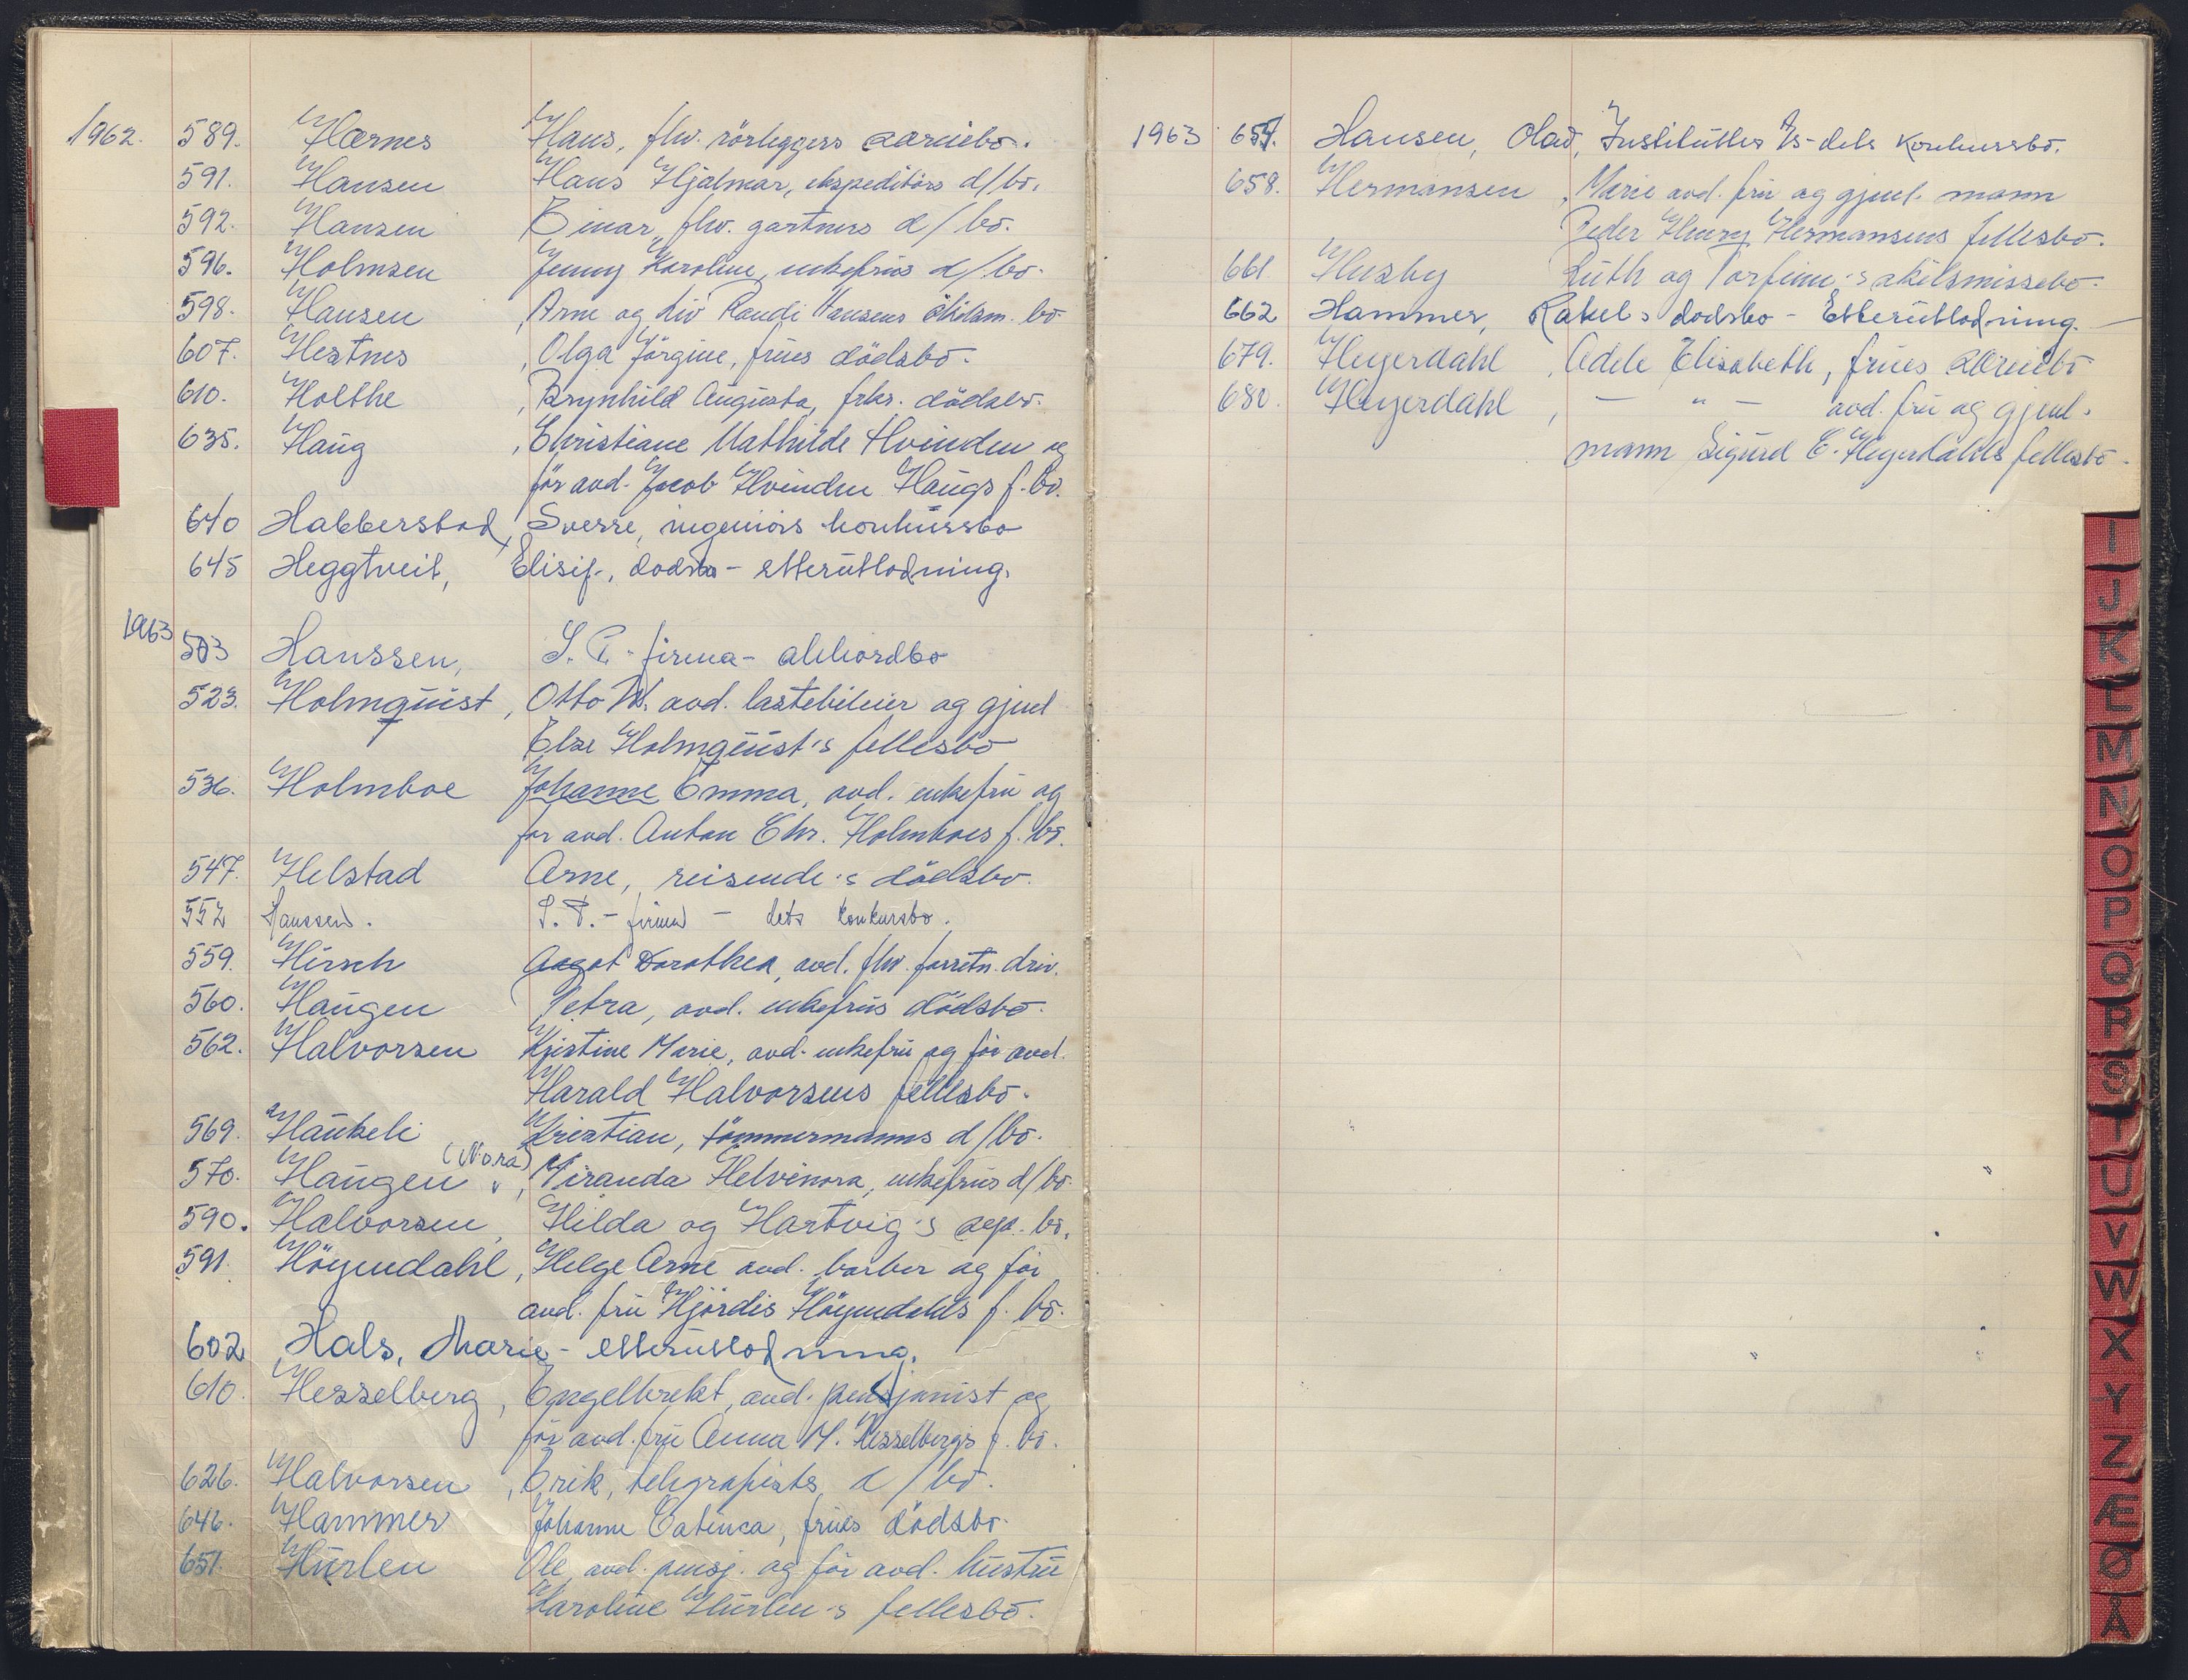 1962. 589. Hærnes Hans, fhv. rörleggers særiebo.
591. Hansen Hans Hjalmar, ekspeditörs d/bo.
592. Hansen Einar, fhv. gartners d/bo.
596. Holmsen Jenny Karoline, enkefrus d/bo.
598. Hansen , Arne og Liv Randi Hansens skilsm. bo
607. Hestnes , Olga Jörgine, frues dödsbo.
610. Holthe , Brynhild Augusta, frks. dödsbo.
635. Haug , Christiane Mathilde Hvinden og
för avd. Jacob Hvinden Haugs f. bo.
640 Habberstad, Sverre, ingeniörs konkursbo
645 Heggtveit, Elisif, dodsbo - etterutlodning.
1963 503 Hanssen, S. P. - firma - akkordbo
523. Holmquist , Otto M. avd. lastebileier og gjenl
Else Holmquist's fellesbo
536. Holmboe Johanne Emma, avd. enkefru og
for avd. Anton Chr. Holmboes f. bo.
547. Helstad Arne, reisende's dödsbo.
552 Hanssen. S. P. - firma - dets konkursbo.
559. Hirsch Aagot Dorothea, avd. fhv. forretn. driv.
560. Haugen Petra, avd. enkefrus dödsbo.
562. Halvorsen Kristine Marie, avd. enkefru og för avd.
Harald Halvorsens fellesbo.
569. Haukeli Kristian, tömmermanns d/bo.
(Nora)
570. Haugen , Miranda Helvinora, enkefrus d/bo.
590. Halvorsen, Hilda og Hartvig's sep. bo.
591. Höyendahl , Helge Arne avd. barber og för
avd. fru Hjördis Höyendahls f. bo.
602 Hals, Marie - etterutlodning.
610. Hesselberg , Engelbrekt, avd. pensjonist og
för avd. fru Anna M. Hesselbergs f. bo.
626. Halvorsen , Erik, telegrafists d/bo.
646. Hammer Johanne Catinca, frues dödsbo.
651. Hurlen Ole, avd. pensj. og för avd. hustru
Karoline Hurlen's fellesbo.
1963 657. Hansen, Olad, Instituttes A/s - dets konkursbo.
658. Hermansen , Marie avd. fru og gjenl. mann
Peder Henry Hermansens fellesbo.
661 Husby Ruth og Torfinn's skilsmissebo.
662 Hammer, Rakels dodsbo - Etterutlodning.
679. Heyerdahl , Adele Elisabeth, frues særiebo
680. Heyerdahl , — " — avd. fru og gjenl.
mann Sigurd E. Heyerdahls fellesbo.
I
J
K
L
M
N
O
P
Q
R
S
T
U
V
W
X
Y
Z
Æ
Ø
Å